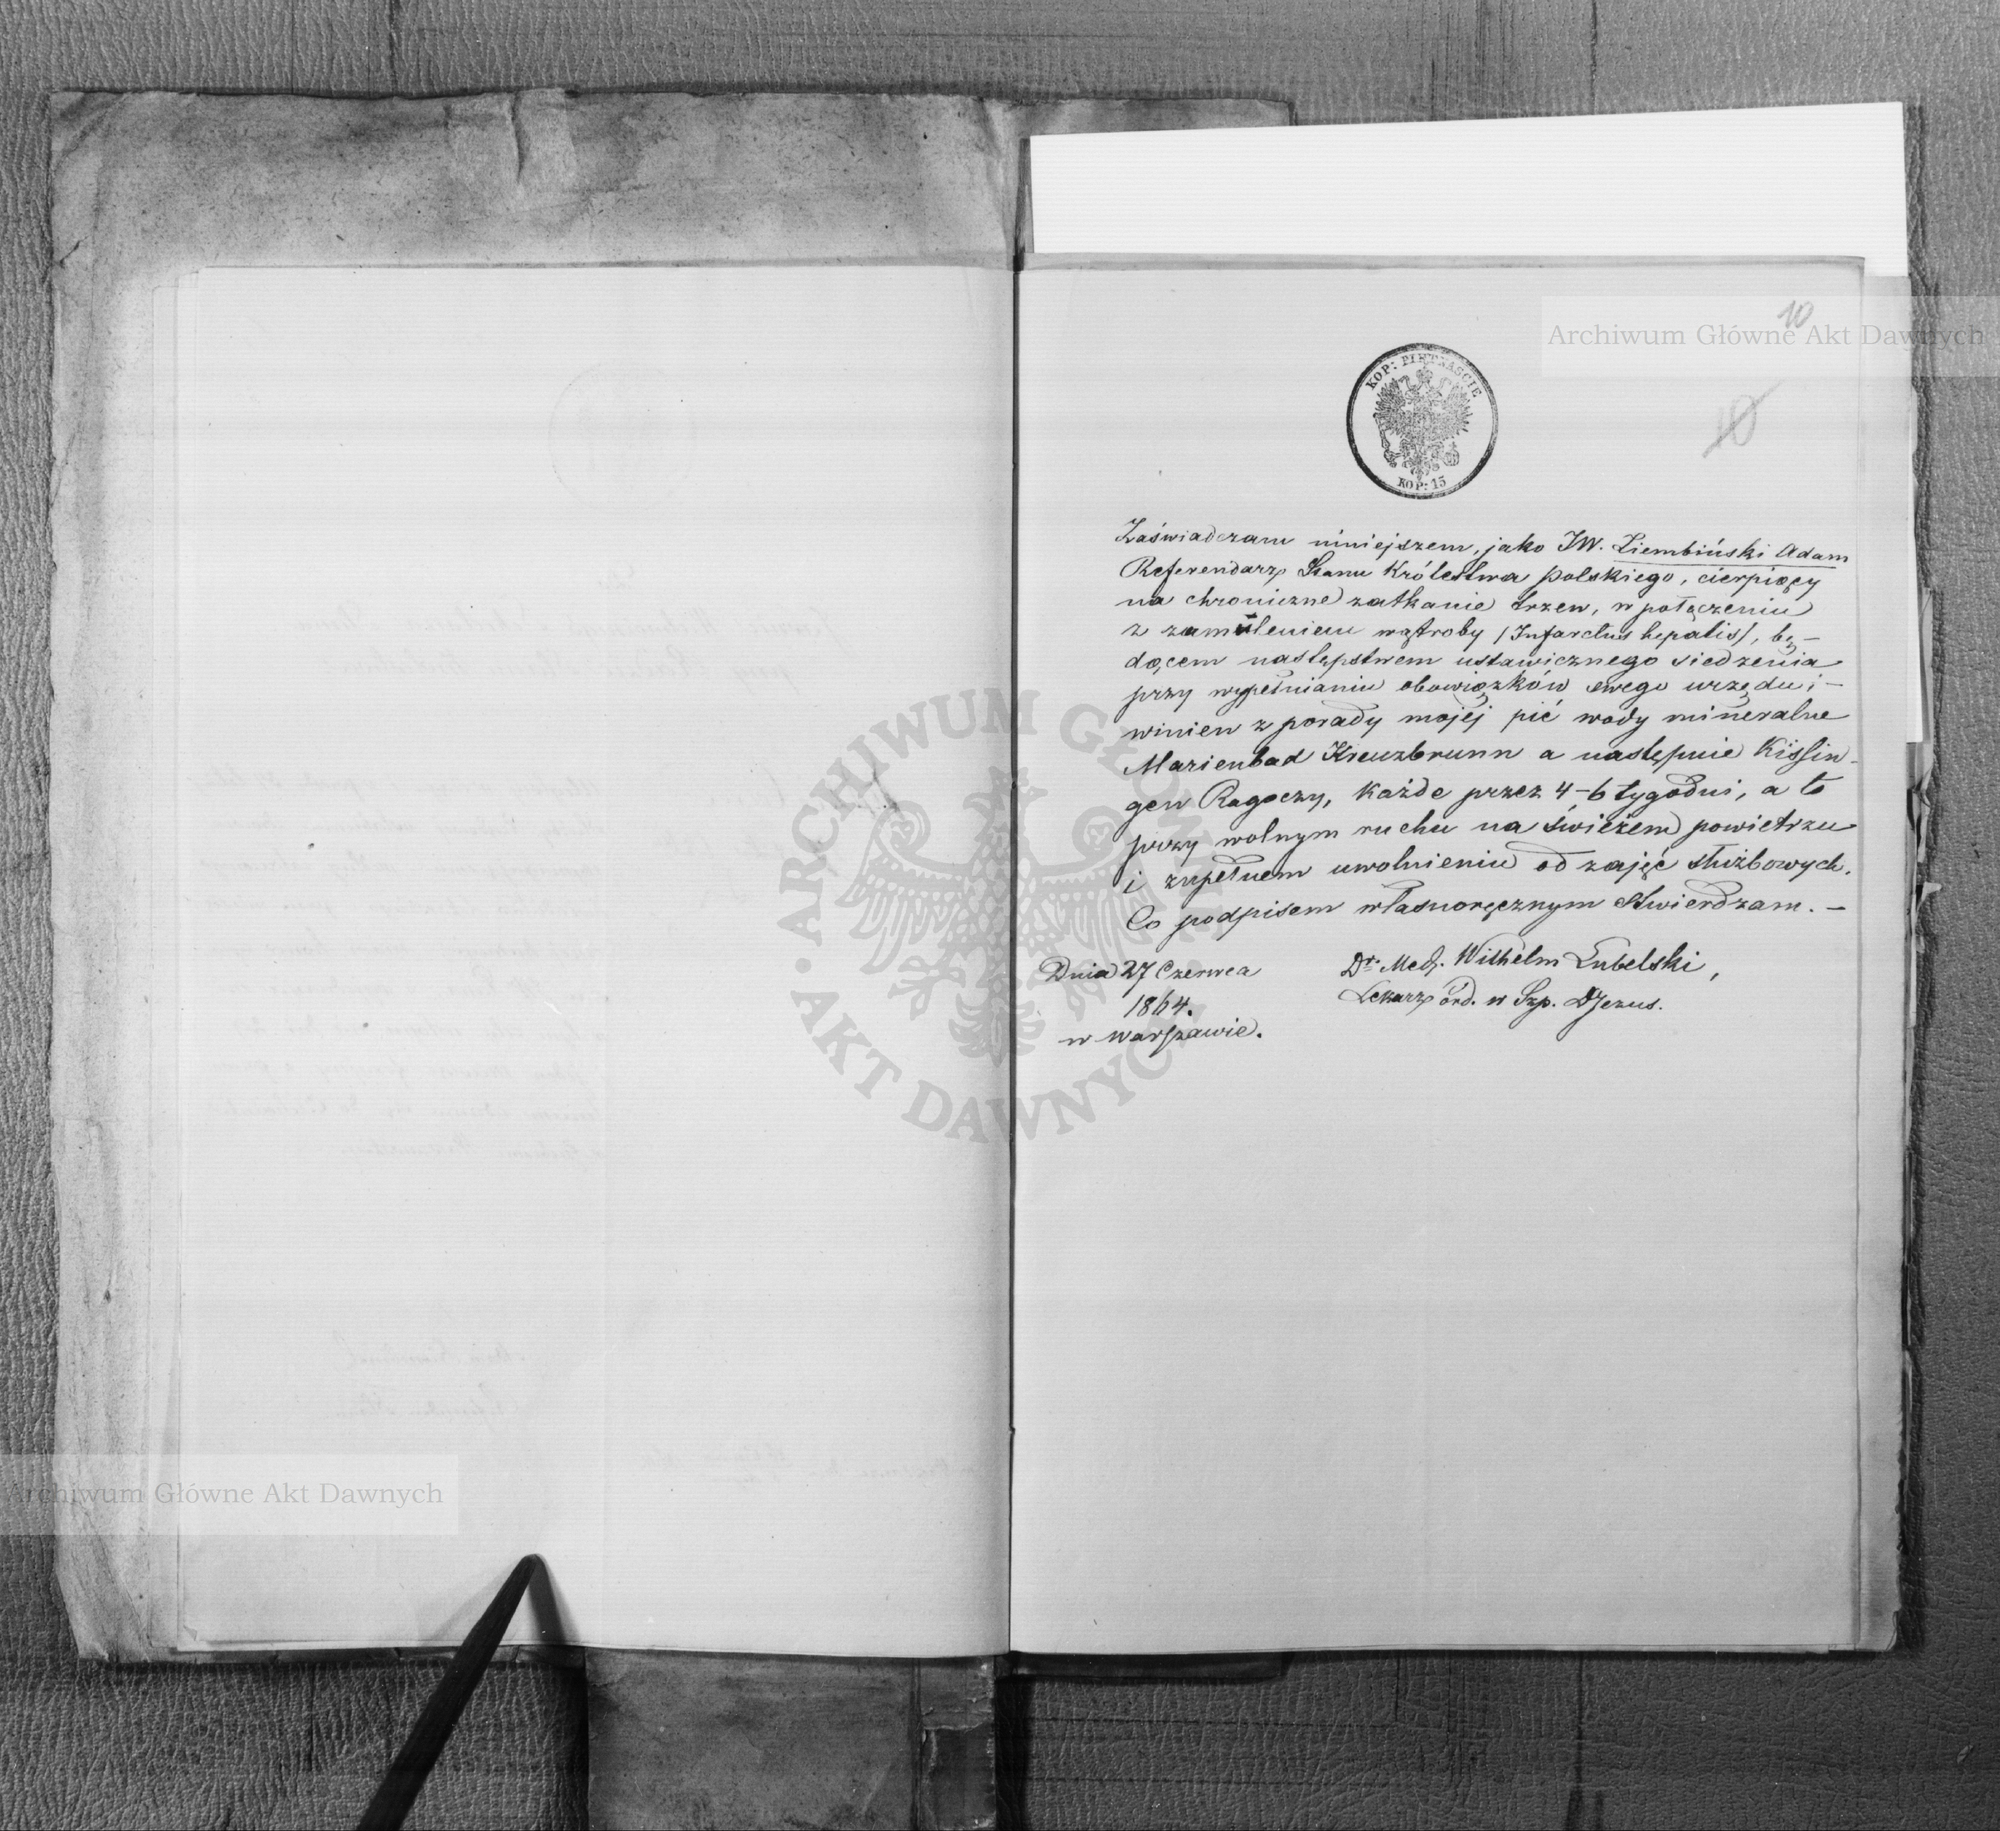 10
Archiwum Główne Akt Dawnych
KOP: PIĘTNAŚCIE
KOP: 15
10
Zaświadczam niniejszem, jako JW. Ziembiński Adam
Referendarz Stanu Królestwa Polskiego, cierpiący
na chroniczne zatkanie trzew, w połączeniu
z zamuleniem wątroby /Infarctus hepatis/, bę-
dącem następstwem ustawicznego siedzenia
przy wypełnianiu obowiązków swego urzędu; -
winien z porady mojéj pić wody mineralne
Marienbad Kreuzbrunn a następnie Kissin-
gen Ragoczy, każde przez 4-6 tygodni, a to
przy wolnym ruchu na świeżem powietrzu
i zupełnem uwolnieniu od zajęć służbowych.
Co podpisem własnoręcznym stwierdzam. -
Dnia 27 Czerwca
1864.
w Warszawie.
Dr. Med. Wilhelm Lubelski,
Lekarz ord. w Szp. DJezus.
ARCHIWUM GŁÓWNE
AKT DAWNYCH
Archiwum Główne Akt Dawnych